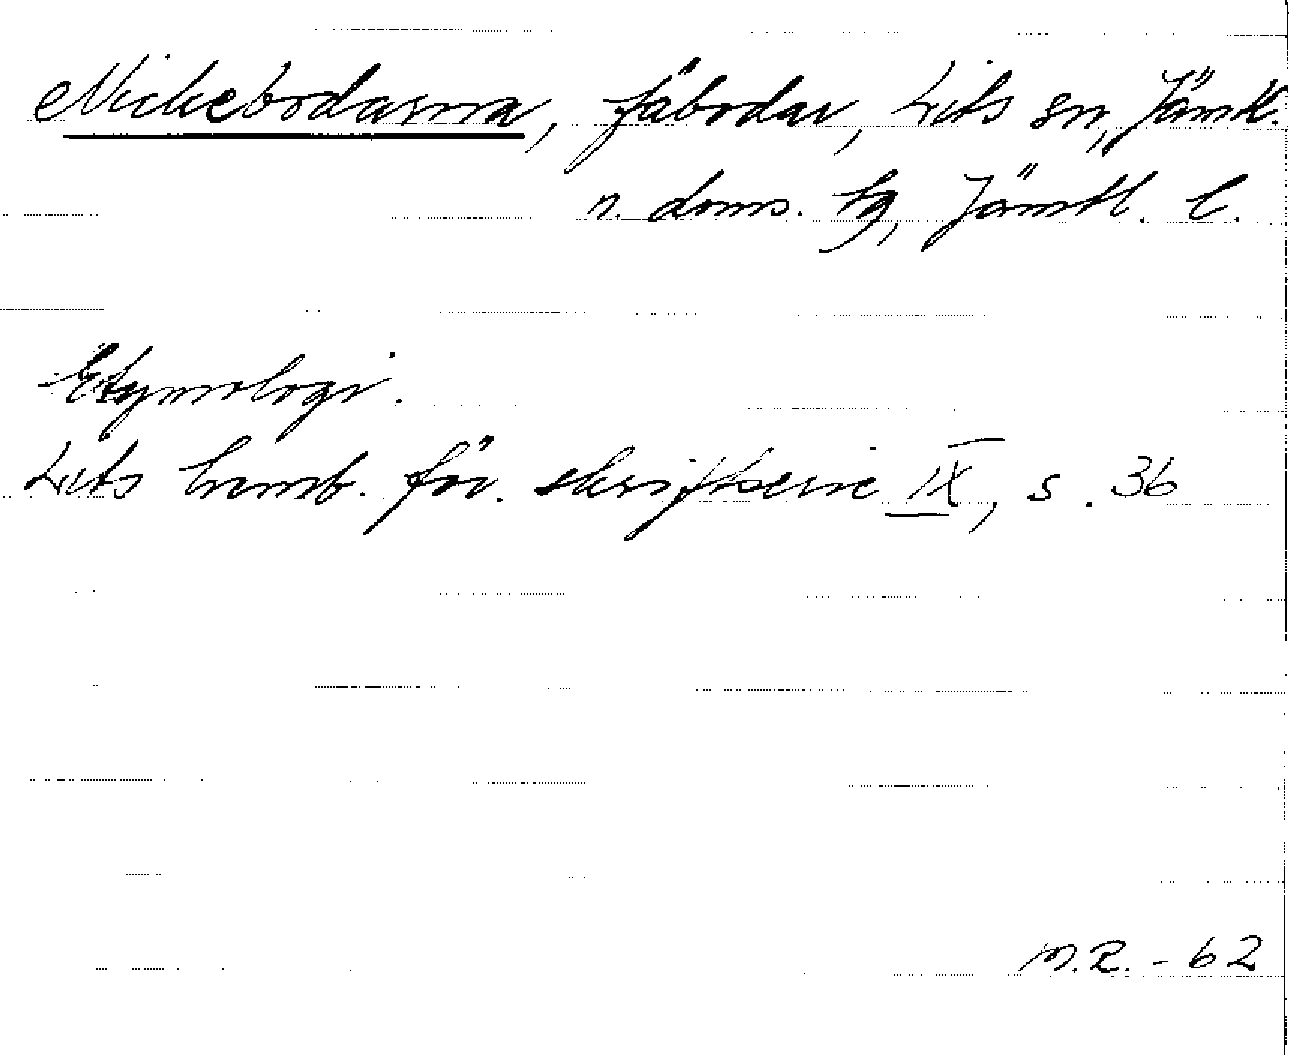 Mickebodarna, fäbodar, Lits sn, Jämtl.
n. doms. tg, Jämtl. l.
Etymologi.
Lits hemb. för. skriftserie IX, s. 36
M.R. - 62